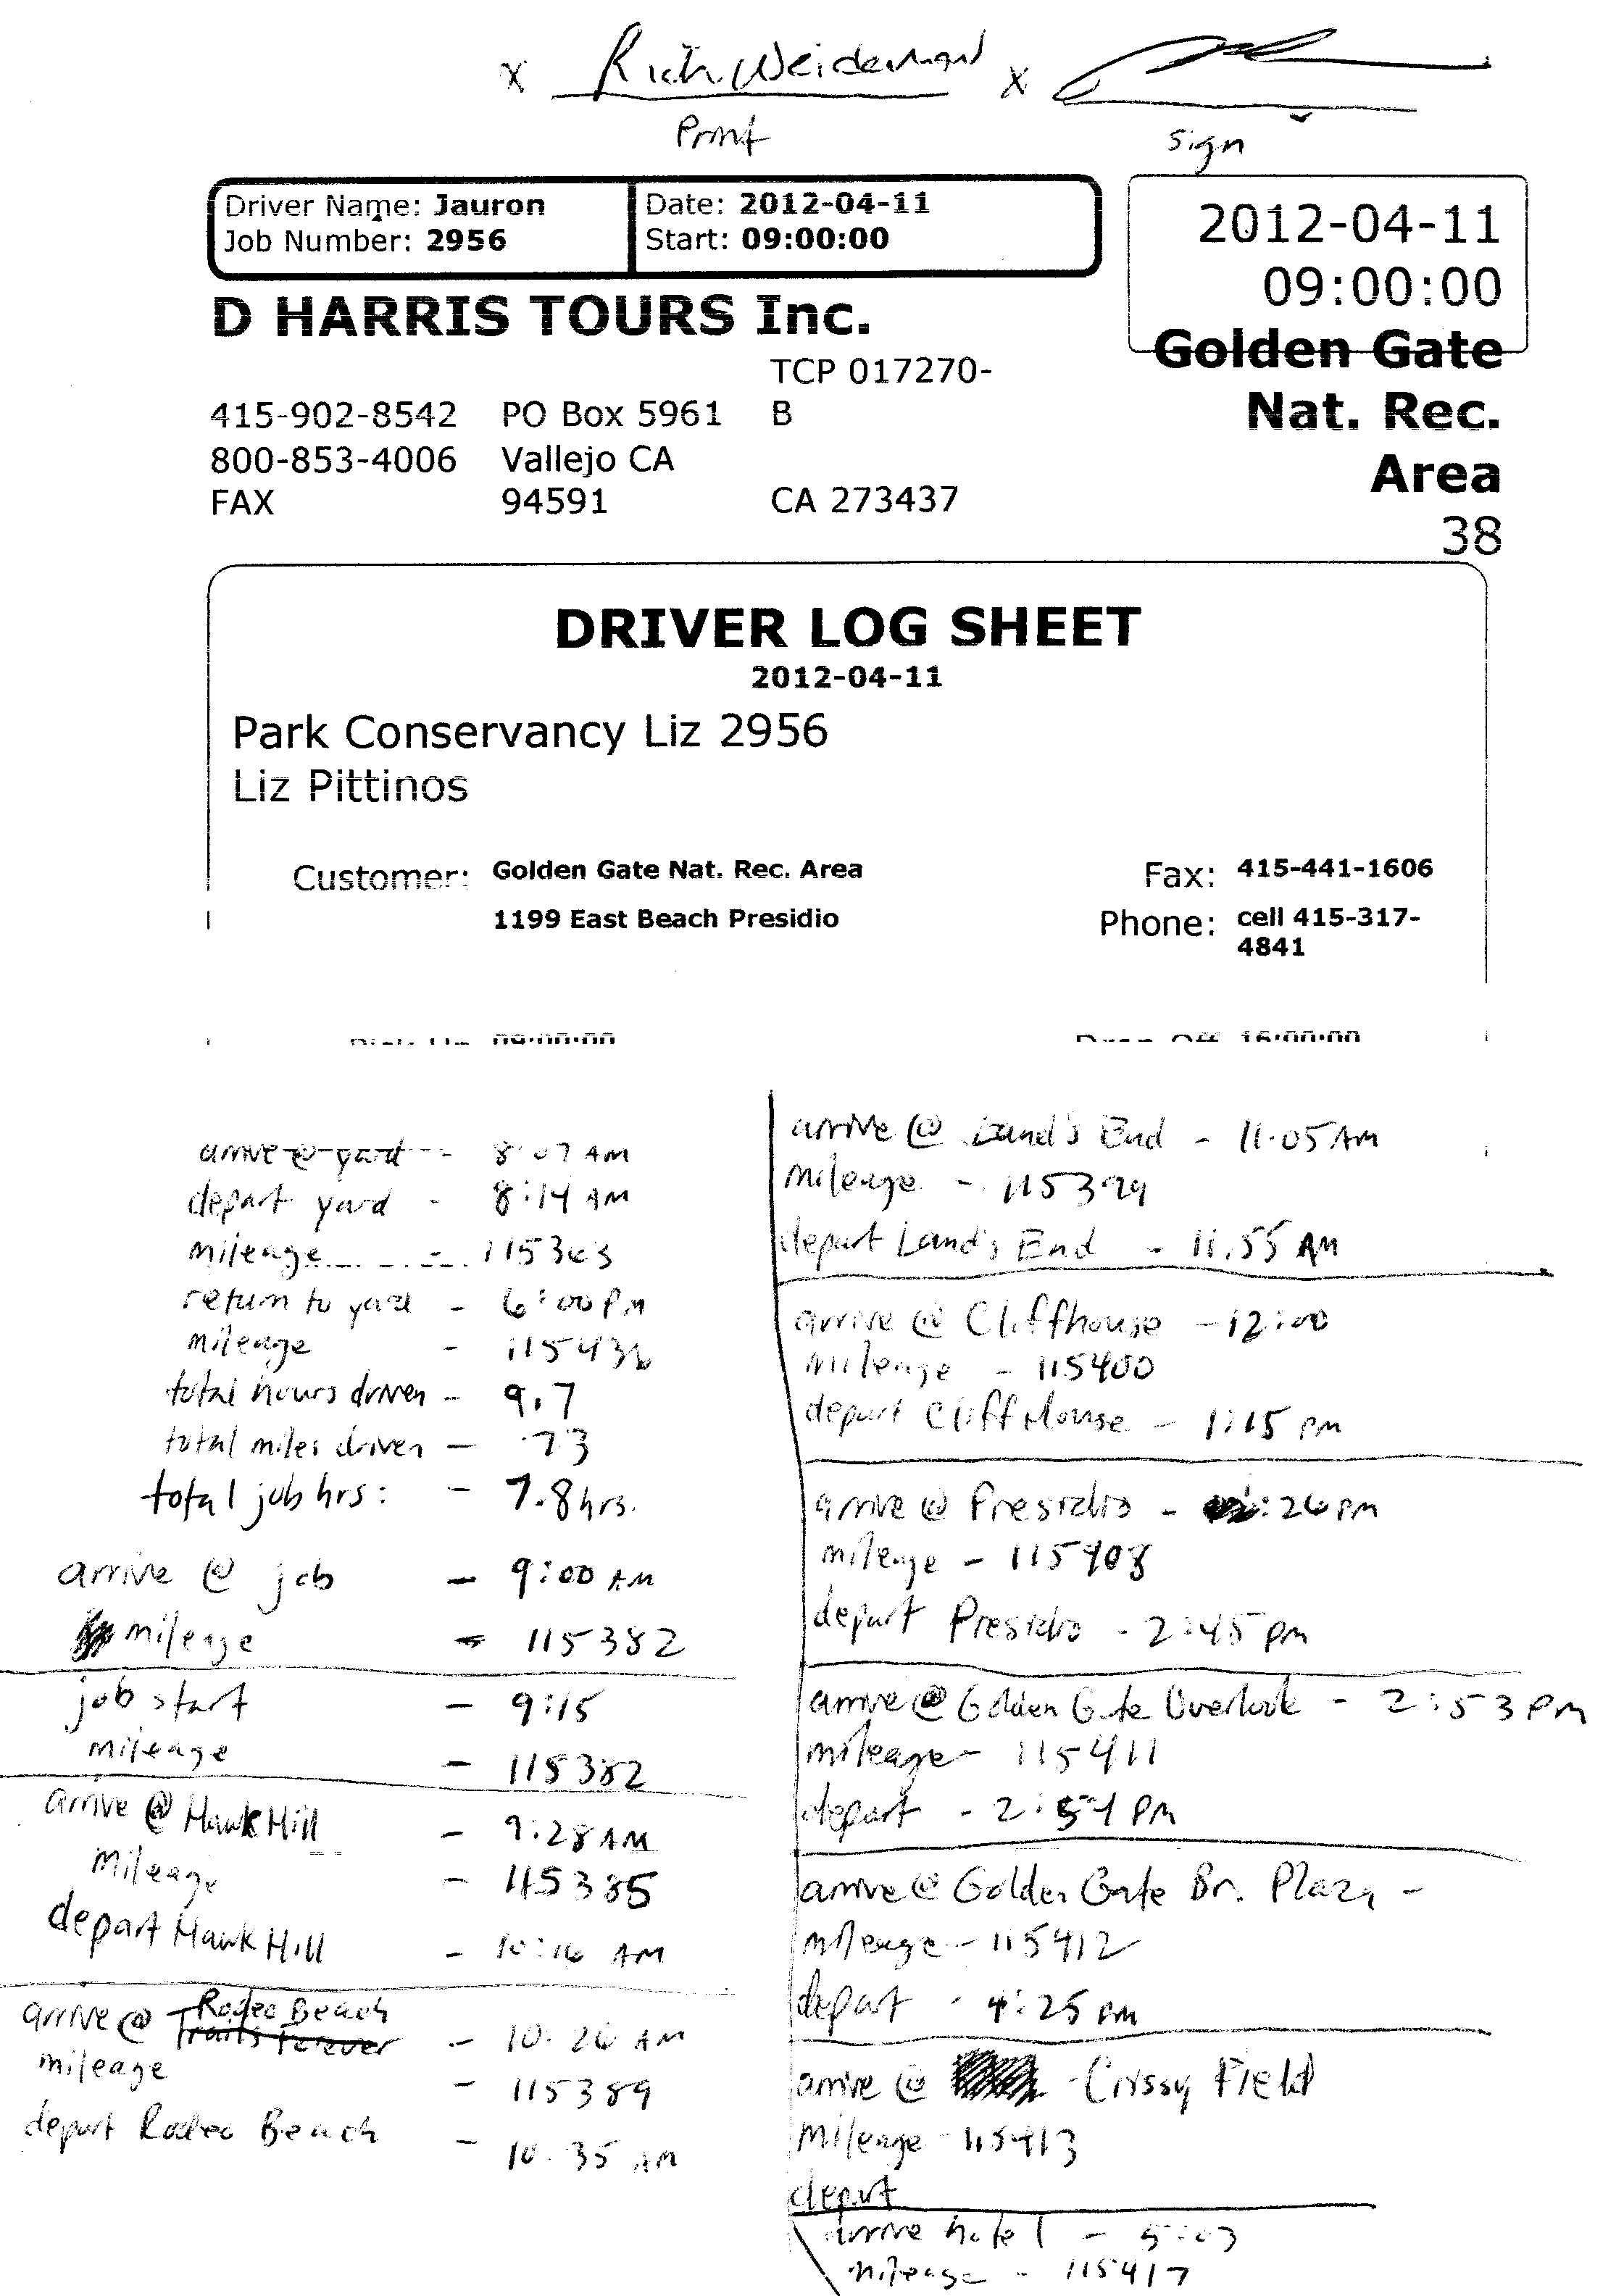 x Rich Weideman x
Print sign
Driver Name: Jauron
Job Number: 2956
Date: 2012-04-11
Start: 09:00:00
2012-04-11
09:00:00
Golden Gate
Nat. Rec.
Area
38
D HARRIS TOURS Inc.
TCP 017270-
415-902-8542 PO Box 5961 B
800-853-4006 Vallejo CA
FAX 94591 CA 273437
DRIVER LOG SHEET
2012-04-11
Park Conservancy Liz 2956
Liz Pittinos
Customer: Golden Gate Nat. Rec. Area
1199 East Beach Presidio
Fax: 415-441-1606
Phone: cell 415-317-
4841
Pick Up 09:00:00 Drop Off 16:00:00
arrive @ yard - 8:07 AM
depart yard - 8:14 AM
mileage - 115363
return to yard - 6:00 PM
mileage - 115436
total hours driven - 9.7
total miles driven - 73
total job hrs: - 7.8 hrs.
arrive @ job - 9:00 AM
mileage - 115382
job start - 9:15
mileage - 115382
arrive @ Hawk Hill - 9:28 AM
mileage - 115385
depart Hawk Hill - 10:16 AM
arrive @ Rodeo Beach - 10:26 AM
Trails Forever
mileage - 115389
depart Rodeo Beach - 10:35 AM
arrive @ Land's End - 11:05 AM
mileage - 115399
depart Land's End - 11:55 AM
arrive @ Cliffhouse - 12:00
mileage - 115400
depart Cliff House - 1:15 pm
arrive @ Presidio - :26 PM
mileage - 115408
depart Presidio - 2:45 pm
arrive @ Golden Gate Overlook - 2:53 PM
mileage - 115411
depart - 2:54 PM
arrive @ Golden Gate Br. Plaza -
mileage - 115412
depart - 4:25 PM
arrive @ - Crissy Field
mileage - 115413
depart
arrive hotel - 5:03
mileage - 115417